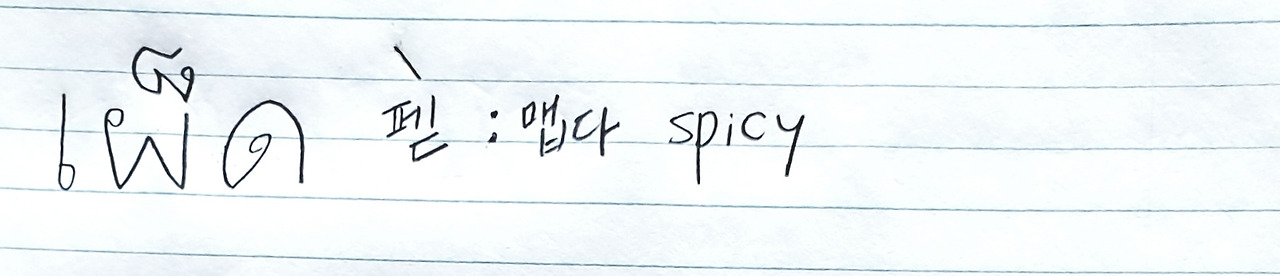 เผ็ด 펟̀ : 맵다 spicy